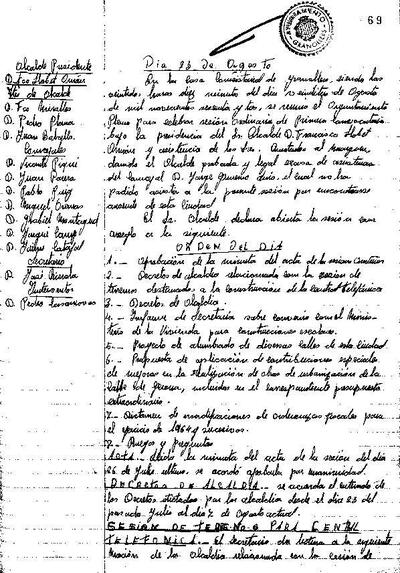 69
AYUNTAMIENTO
GRANOLLERS
Alcalde Presidente
D. Fco Llobet
Ttes de Alcalde
D. Fco
D. Pedro Plana
D. Juan
Concejales
D. Vicente
D. Juan
D. Pablo Ruiz
D. Miguel
D.
D.
D. Felipe
Secretario
D. José
Interventor
D. Pedro
Dia 23 De Agosto
En la Casa Consistorial de Granollers, siendo las
horas diez minutos del dia veintitres de Agosto
de mil novecientos sesenta y tres, se reunio el Ayuntamiento
Pleno para celebrar sesión Ordinaria de Primera Convocatoria
bajo la presidencia del Sr. Alcalde D. Francisco Llobet
y asistencia de los Sres. Anotados al margen,
dando el Alcalde probada y legal excusa de asistencia
del Concejal D. Jorge el cual no ha
podido asistir a la presente sesión por encontrarse
ausente de esta Ciudad
El Sr. Alcalde, declara abierta la sesión con
arreglo a la siguiente.
ORDEN DEL DIA
1.- Aprobación de la minuta del acta de la sesion anterior
2.- Decreto de alcaldia relacionado con la cesion de
terrenos destinados a la construcción de la Central Telefónica
3.- Decretos de Alcaldia.
4.- Informe de Secretaria sobre convenio con el Minis-
terio de la Vivienda para construcciones escolares.
5.- Proyecto de alumbrado de diversas calles de esta Ciudad
6.- Propuesta de aplicación de contribuciones especiales
de mejoras en la realización de obras de urbanización de la
Calle de incluidas en el correspondiente presupuesto
extraordinario.
7.- Dictamen de modificaciones de ordenanzas fiscales para
el ejercicio de 1964 y sucesivos.
8.- Ruegos y preguntas
ACTA.- Leida la minuta del acta de la sesion del dia
26 de Julio ultimo, se acordó aprobarla por unanimidad.
DECRETOS DE ALCALDIA.- se acuerda el enterado de
los Decretos dictados por la alcaldia desde el dia 23 del
pasado Julio al dia de Agosto actual.
CESION DE TERRENOS PARA CENTRAL
TELEFONICA.- El Secretario da lectura a la siguiente
Moción de la Alcaldia relacionada con la cesión de